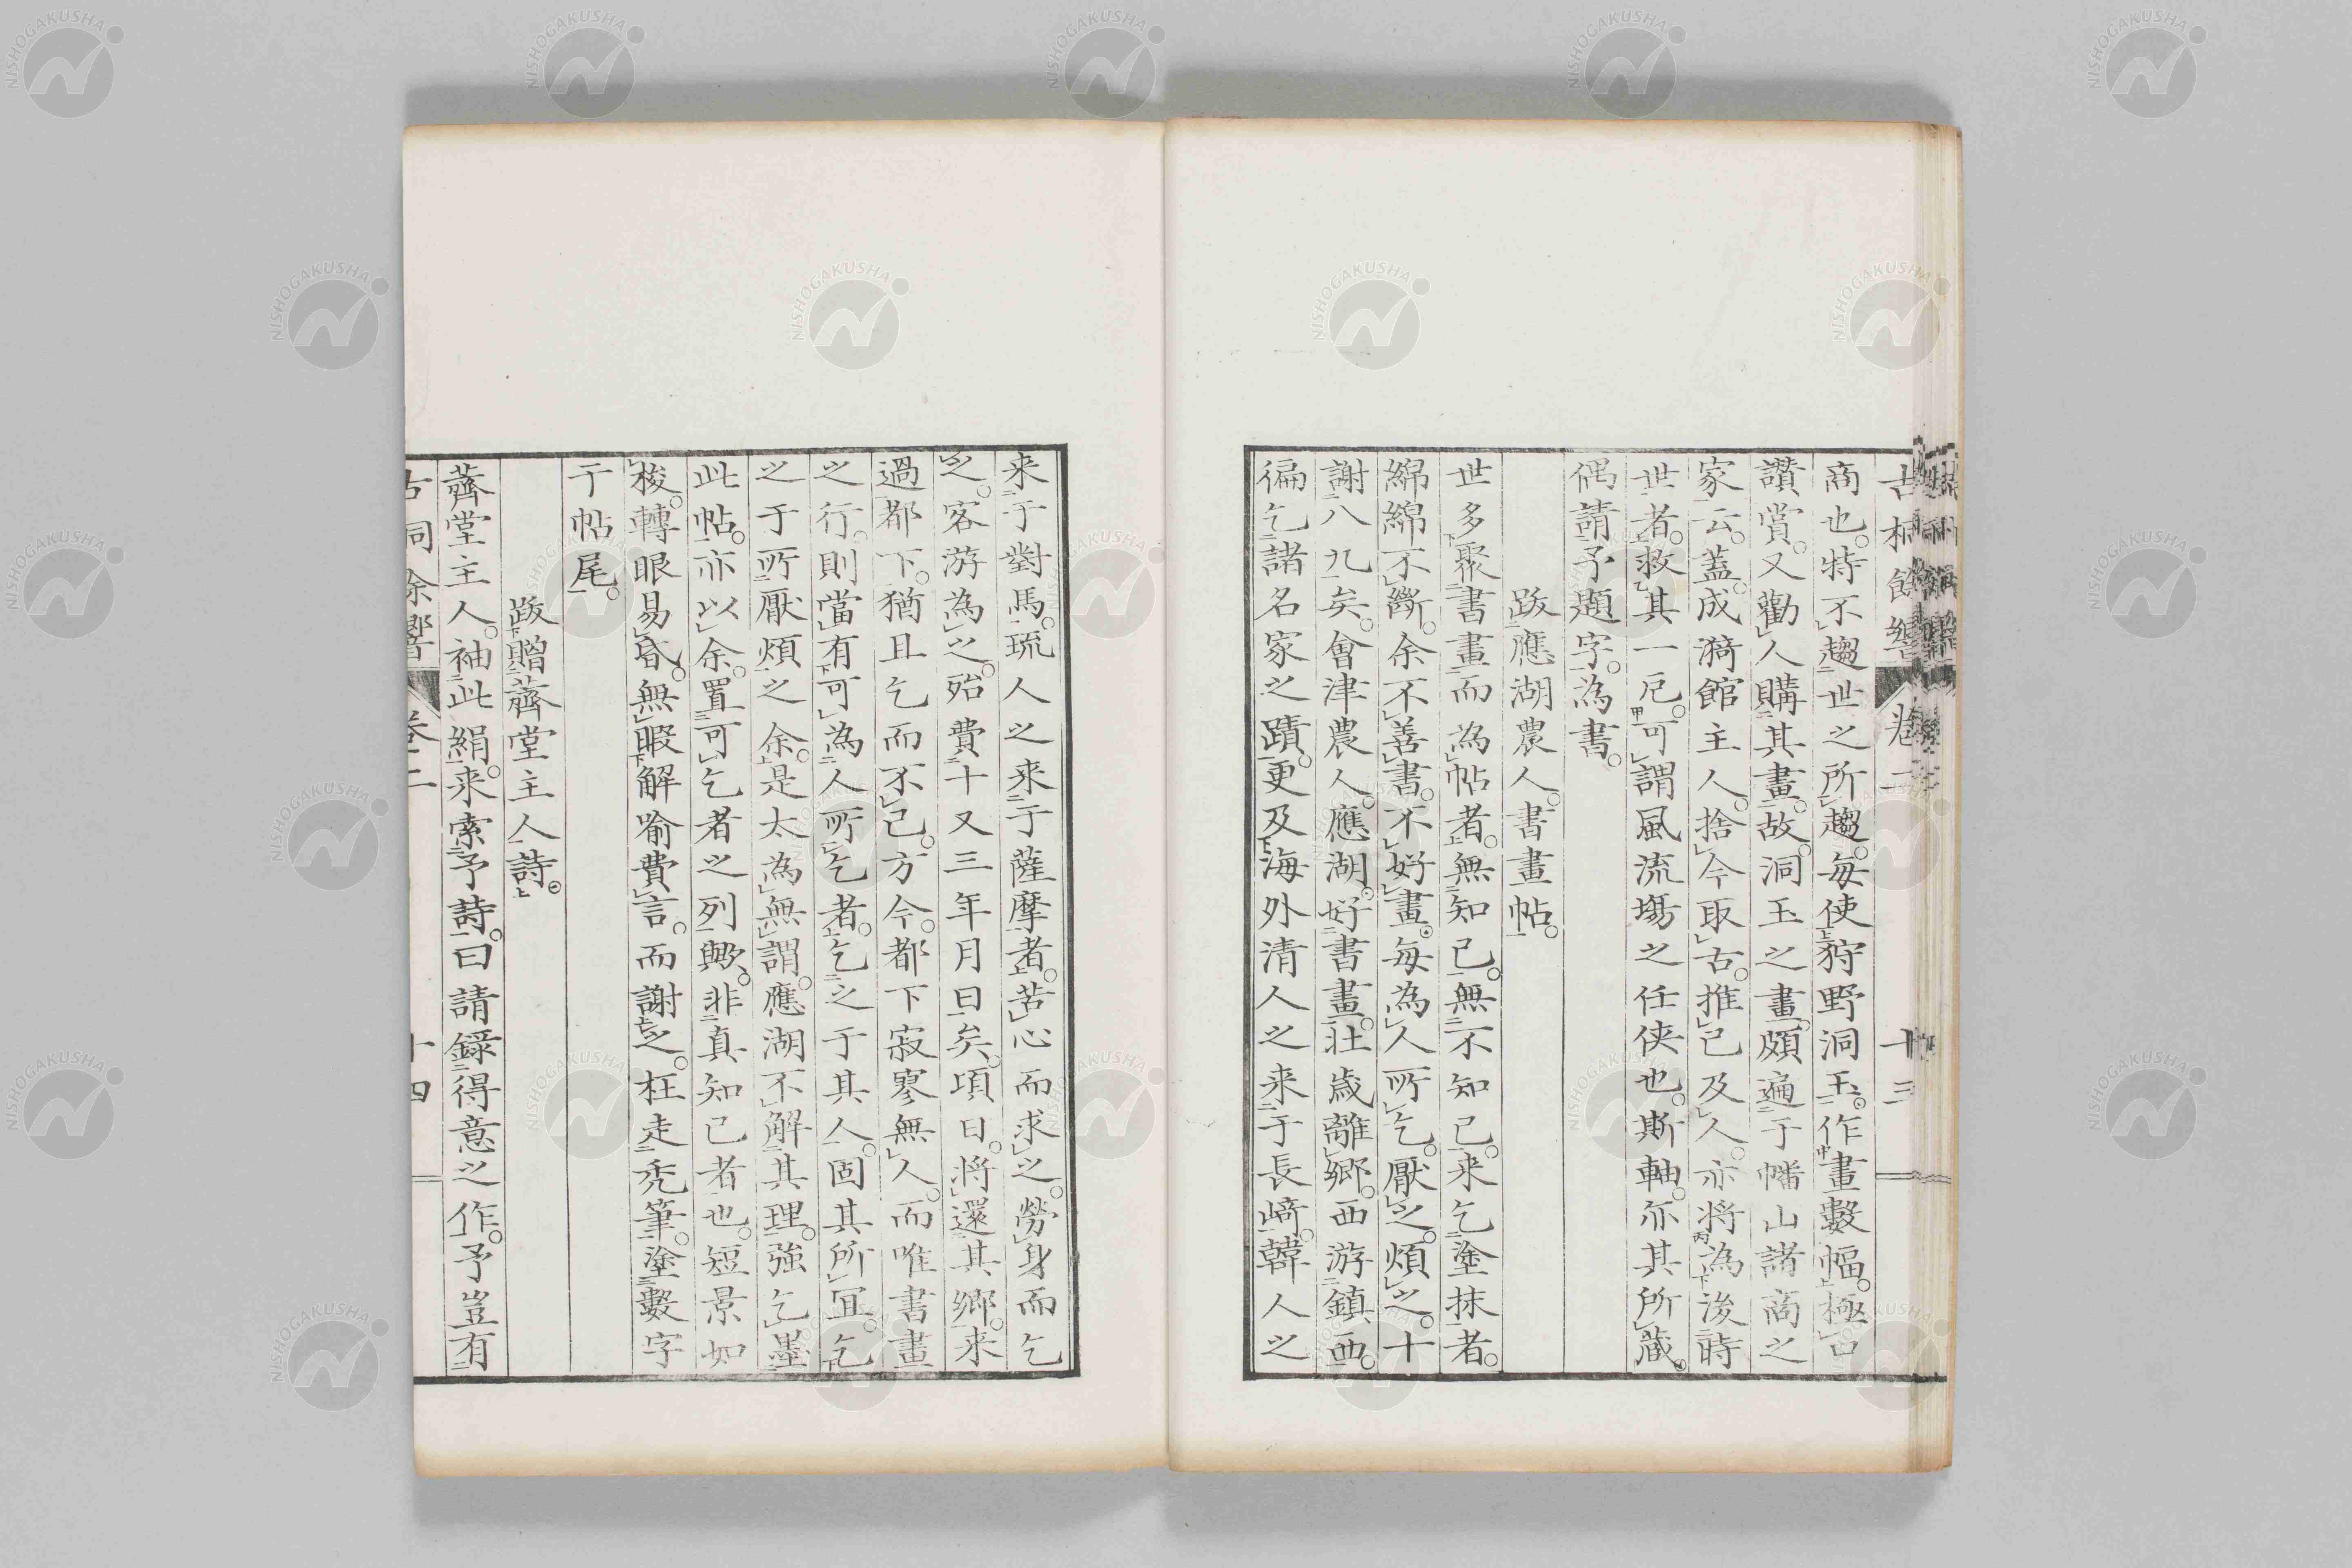 古桐餘響 卷二 十三
商也。特不趨世之所趨。每使狩野洞玉。作畫數幅。極口
讃賞。又勸人購其畫。故洞玉之畫。頗遍于幡山諸商之
家云。蓋成漪館主人。捨今取古。推己及人。亦将為後時
世者。救其一厄。可謂風流塲之任侠也。斯軸亦其所蔵。
偶請予題字。為書。
跋應湖農人。書畫帖。
世多聚書畫而為帖者。無知己。無不知己。来乞塗抹者。
綿綿不斷。余不善書。不好畫。每為人所乞。厭之。煩之。十
謝八九矣。會津農人。應湖。好書畫。壮歳離郷。西游鎮西。
徧乞諸名家之蹟。更及海外清人之来于長﨑。韓人之
来于對馬。琉人之来于薩摩者。苦心而求之。勞身而乞
之。客游為之。殆費十又三年月日矣。項日。将還其郷。来
過都下。猶且乞而不已。方今。都下寂寥無人。而唯書畫
之行。則當有可為人所乞者。乞之于其人。固其所宜。乞
之于所厭煩之余。是太為無謂。應湖不解其理。強乞墨
此帖。亦以余。置可乞者之列歟。非真知己者也。短景如
梭。轉眼易昏。無暇解喻費言。而謝之。枉走禿筆。塗數字
于帖尾。
跋贈薺堂主人詩。
薺堂主人。袖此絹。来索予詩。曰請錄得意之作。予豈有
古桐余響 卷二 十四